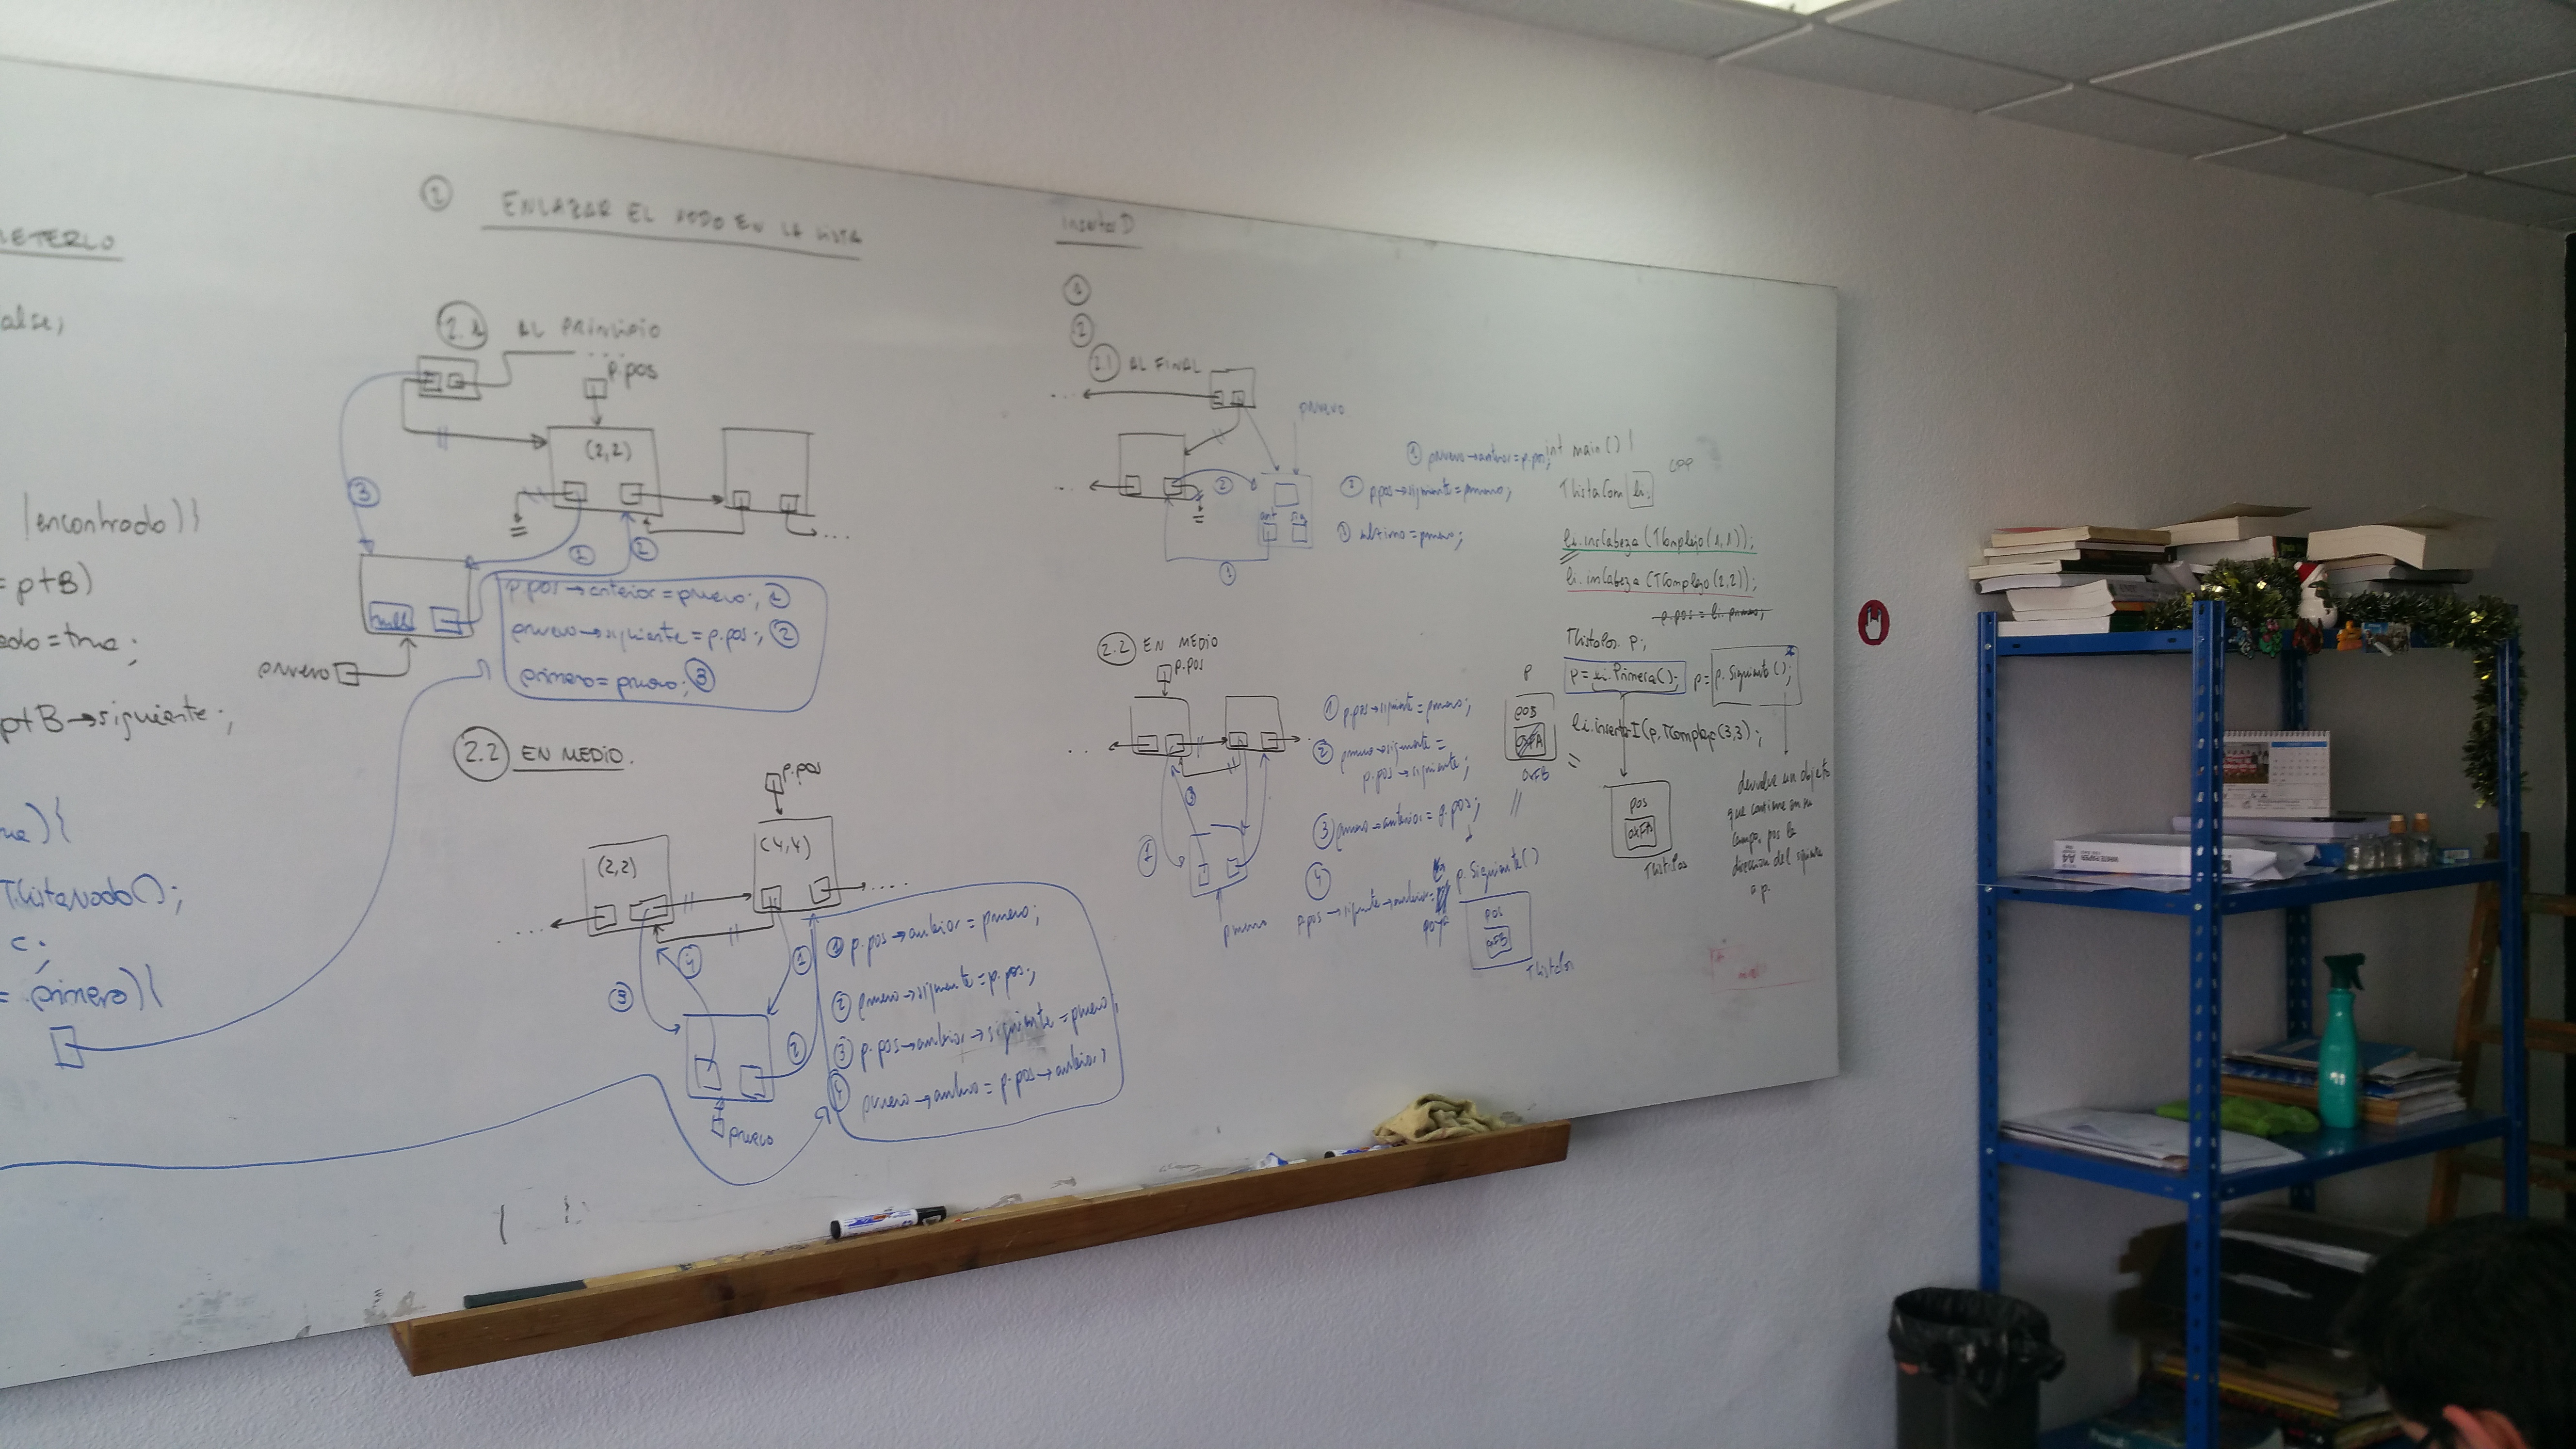 METERLO
alse;
encontrado)}
= ptB)
ado = true;
ptB→siguiente;
TListaNodo();
c;
= primero){
② ENLAZAR EL NODO EN LA LISTA
2.1 AL PRINCIPIO
p.pos
(2,2)
③
① ②
null
pnuevo
p.pos→anterior = pnuevo; ①
pnuevo→siguiente = p.pos; ②
primero = pnuevo; ③
2.2 EN MEDIO.
p.pos
(2,2)
(4,4)
④ ①
③
②
pnuevo
① p.pos→anterior = pnuevo;
② pnuevo→siguiente = p.pos;
③ p.pos→anterior→siguiente = pnuevo;
④ pnuevo→anterior = p.pos→anterior;
InsertarD
①
②
2.1 AL FINAL
pnuevo
②
ant sig
①
① pnuevo→anterior = p.pos;
② p.pos→siguiente = pnuevo;
③ ultimo = pnuevo;
2.2 EN MEDIO
p.pos
③
①
pnuevo
① p.pos→siguiente = pnuevo;
② pnuevo→siguiente =
p.pos→siguiente;
③ pnuevo→anterior = p.pos;
④
p.pos→siguiente→anterior =
p.Siguiente()
pos
0xFB
TListaPos
int main() {
CPP
TListaCom li.
li.insCabeza(TComplejo(1,1));
li.insCabeza(TComplejo(2,2));
p.pos = li.primero;
TListaPos p;
p = li.Primera(); p = p.Siguiente();
li.insertarI(p, TComplejo(3,3);
P
pos
0xFA
0xFB
pos
0xFA
TListaPos
devuelve un objeto
que contiene en su
campo, pos la
direccion del siguiente
a p.
A4